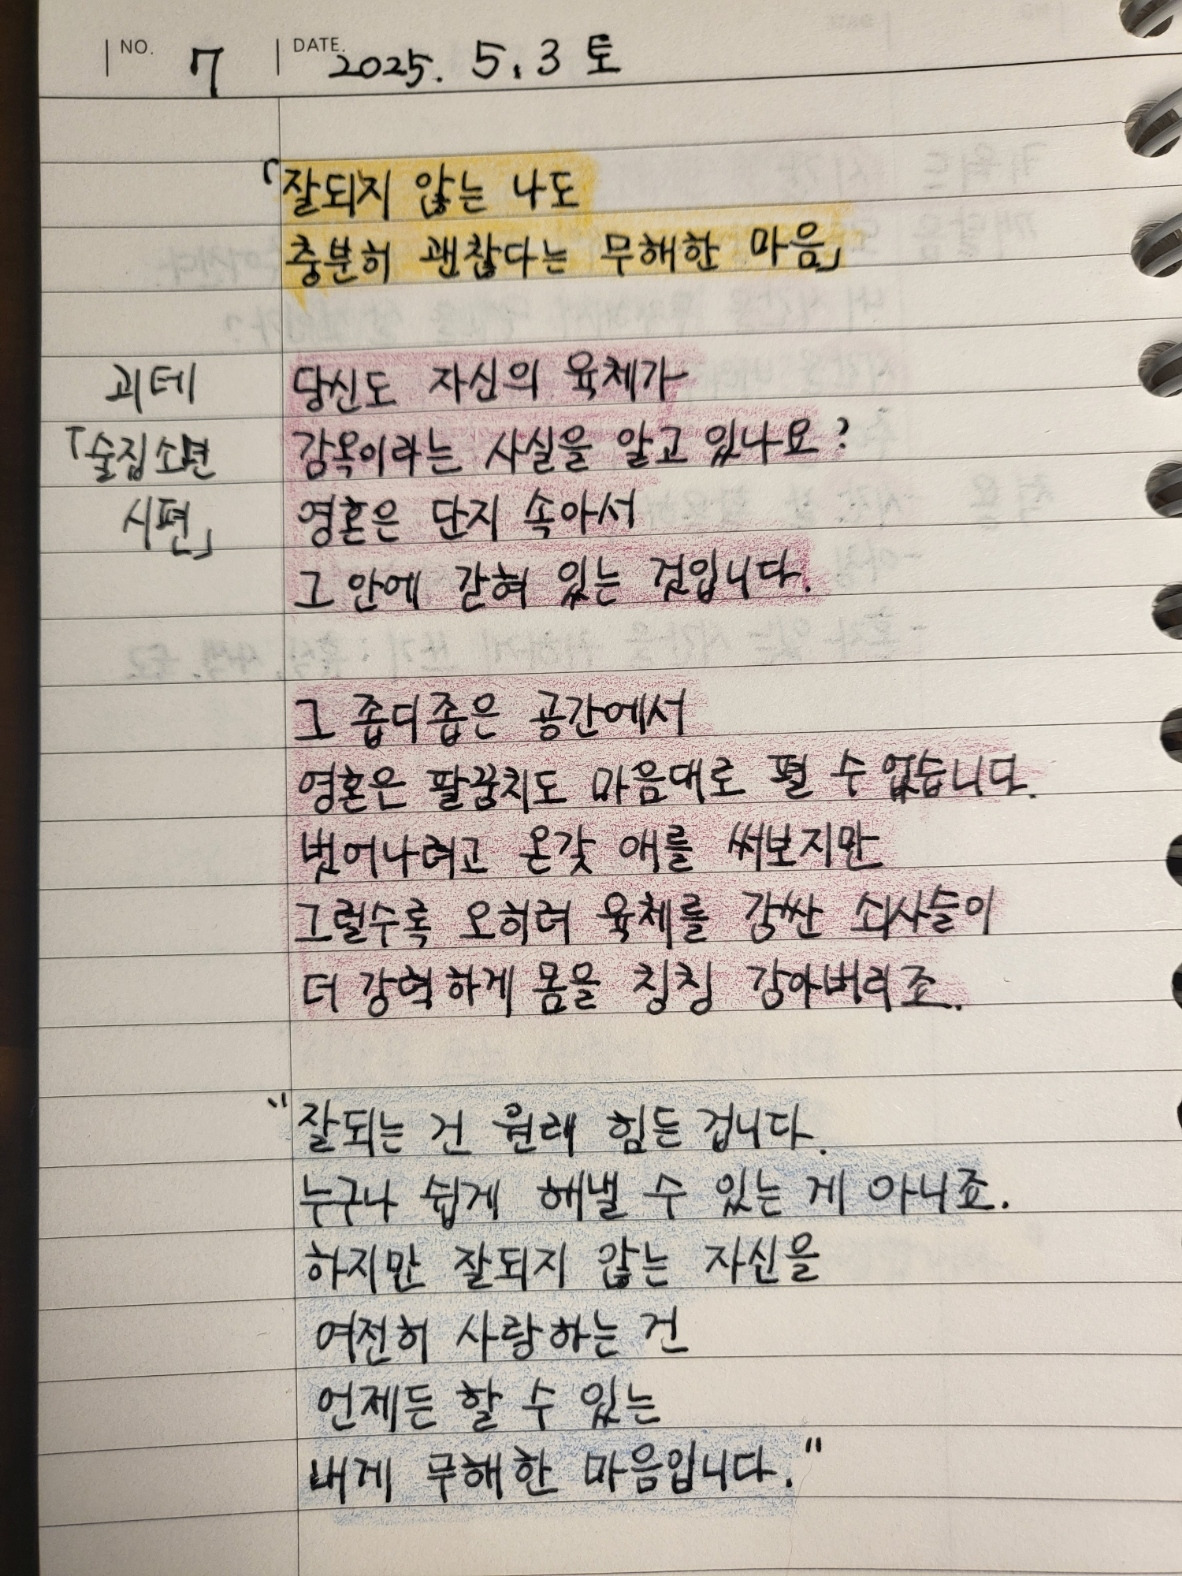 NO. 7 DATE. 2025. 5. 3 토
「잘되지 않는 나도
충분히 괜찮다는 무해한 마음」
괴테 당신도 자신의 육체가
「술집소년 감옥이라는 사실을 알고 있나요?
시편」 영혼은 단지 속아서
그 안에 갇혀 있는 것입니다.
그 좁디좁은 공간에서
영혼은 팔꿈치도 마음대로 펼 수 없습니다.
벗어나려고 온갖 애를 써보지만
그럴수록 오히려 육체를 감싼 쇠사슬이
더 강력하게 몸을 칭칭 감아버리죠.
"잘되는 건 원래 힘든 겁니다.
누구나 쉽게 해낼 수 있는 게 아니죠.
하지만 잘되지 않는 자신을
여전히 사랑하는 건
언제든 할 수 있는
내게 무해한 마음입니다."